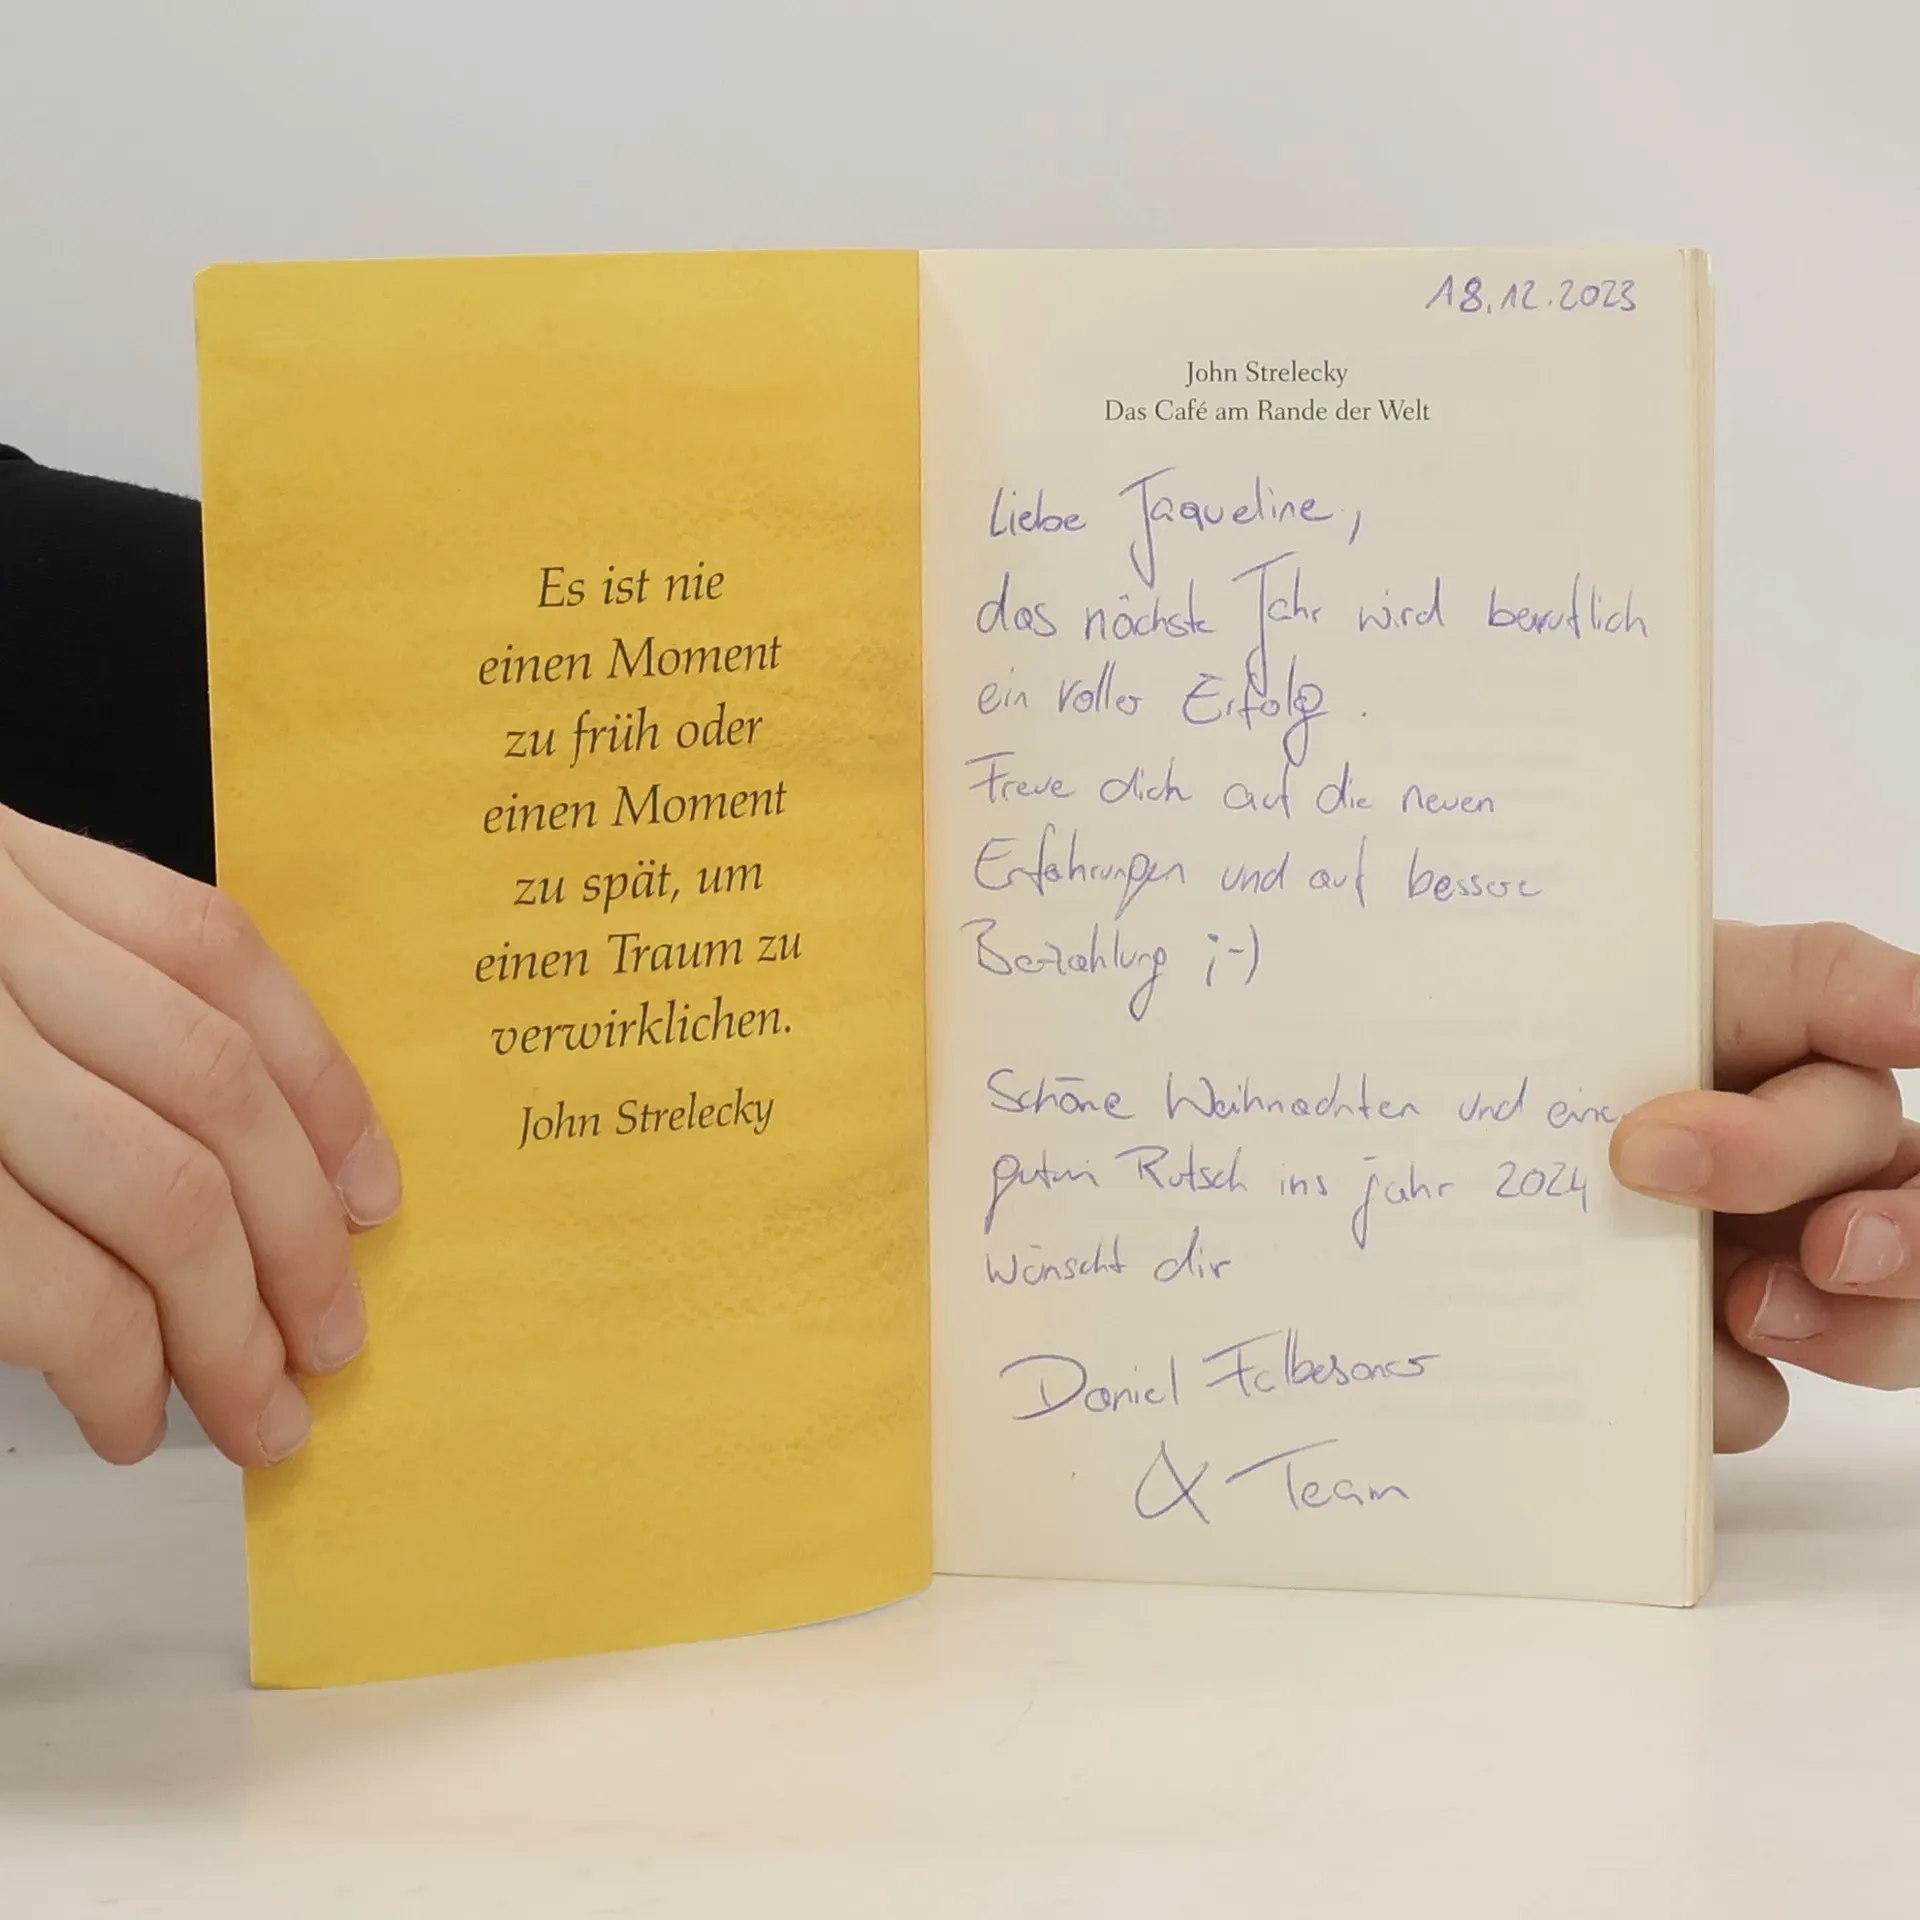 Es ist nie
einen Moment
zu früh oder
einen Moment
zu spät, um
einen Traum zu
verwirklichen.
John Strelecky
18.12.2023
John Strelecky
Das Café am Rande der Welt
Liebe Jaqueline,
das nächste Jahr wird beruflich
ein voller Erfolg.
Freue dich auf die neuen
Erfahrungen und auf bessere
Bezahlung ;-)
Schöne Weihnachten und eine
guten Rutsch ins Jahr 2024
wünscht dir
Daniel Falbesoner
& Team